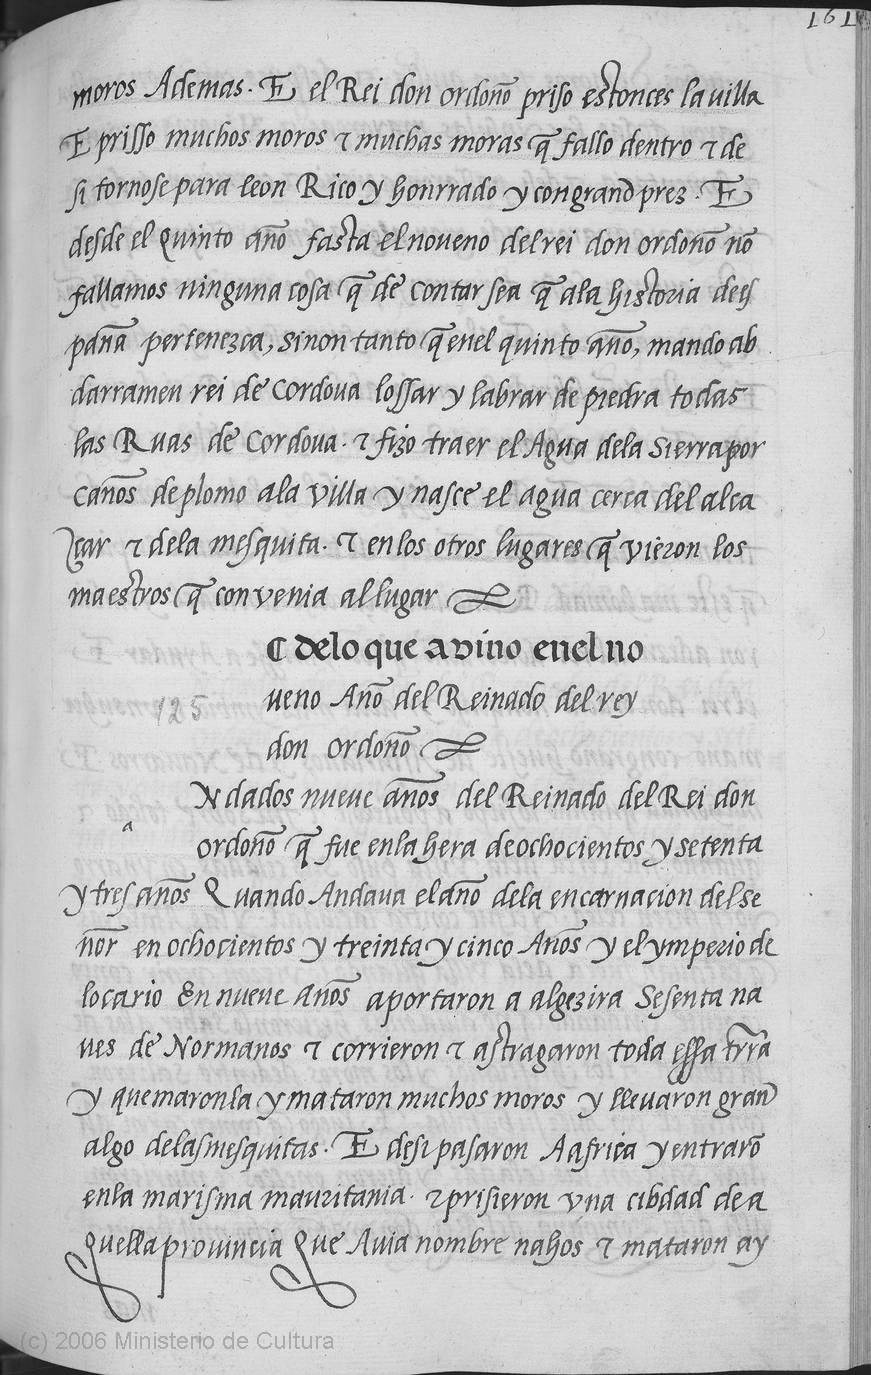 161
moros Ademas. E el Rei don ordoño priso estonces la villa
E prisso muchos moros τ muchas moras q̄ fallo dentro τ de
si tornose para leon Rico y honrrado y con grand prez. E
desde el quinto año fasta el noveno del rei don ordoño nō
fallamos ninguna cosa q̄ de contar sea q̄ ala historia de es
paña pertenezca, sinon tanto q̄ enel quinto año, mando ab
darramen rei de Cordova lossar y labrar de piedra todas
las Ruas de Cordova. τ fizo traer el Agua dela sierra por
caños de plomo ala villa y nasce el agua cerca del alca
çar τ dela mesquita. τ en los otros lugares q̄ vieron los
maestros q̄ convenia al lugar
C delo que avino enel no
veno Año del Reinado del rey
125
don ordoño
a
Ndados nueve años del Reinado del Rei don
ordoño q̄ fue enla hera de ochocientos y setenta
y tres años Quando Andava el año dela encarnacion del se
ñor en ochocientos y treinta y cinco Años y el ymperio de
locario En nueve años aportaron a algezira Sesenta na
ves de Normanos τ corrieron τ astragaron toda essa trrā
y quemaronla y mataron muchos moros y llevaron gran
algo delas mesquitas. E desi pasaron A africa y entrarō
enla marisma mauritania. τ prisieron vna cibdad de a
quella provincia que Avia nombre nahos τ mataron ay
(c) 2006 Ministerio de Cultura